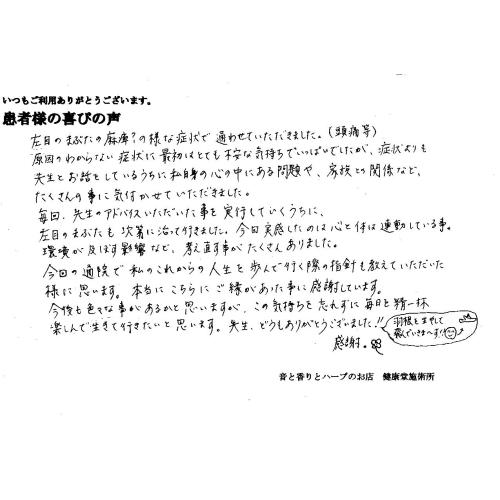 いつもご利用ありがとうございます。
患者様の喜びの声
左目のまぶたの麻痺?の様な症状で通わせていただきました。(頭痛等)
原因のわからない症状に最初はとても不安な気持ちでいっぱいでしたが、症状よりも
先生とお話をしているうちに私自身の心の中にある問題や、家族との関係など、
たくさんの事に気付かせていただきました。
毎回、先生のアドバイスいただいた事を実行していくうちに、
左目のまぶたも次第に治って行きました。今回実感したのは心と体は連動している事。
環境が及ぼす影響など、教え直す事がたくさんありました。
今回の通院で私のこれからの人生を歩んで行く際の指針も教えていただいた
様に思います。本当にこちらにご縁があった事に感謝しています。
今後も色々な事があるかと思いますが、この気持ちを忘れずに毎日を精一杯
楽しんで生きて行きたいと思います。先生、どうもありがとうございました!!
羽根を生やして
飛んでいきまーす!!
感謝。
音と香りとハーブのお店 健康堂施術所